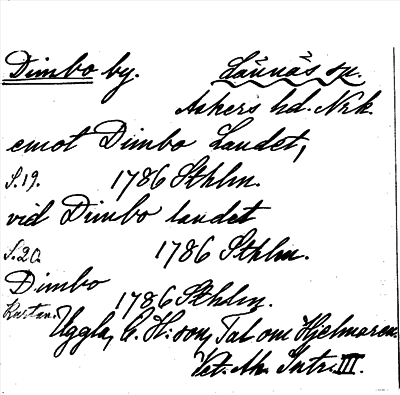 Dimbo by. Lännäs sn.
Askers hd. Nrk.
emot Dimbo Landet,
S. 19. 1786 Sthlm.
vid Dimbo landet
S. 20. 1786 Sthlm.
Dimbo
Kartan. 1786 Sthlm.
Uggla, C. H:son, Tal om Hjelmaren.
Vet. Ak. Intr. III.